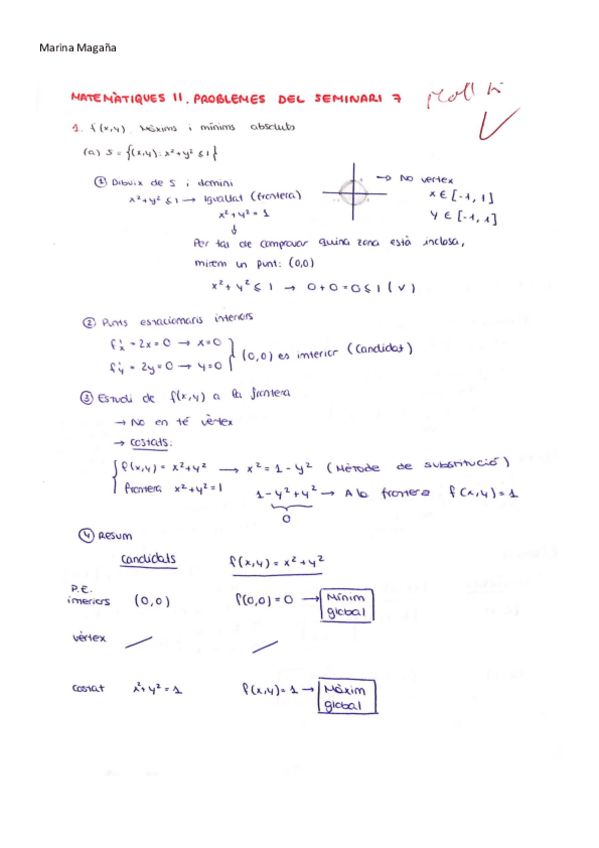 Marina Magaña
MATEMÀTIQUES II. PROBLEMES DEL SEMINARI 7
Molt bé
1. f(x,y) Màxims i mínims absoluts
(a) S = {(x,y): x² + y² ≤ 1}
① Dibuix de S i domini
x² + y² ≤ 1 → Igualtat (frontera)
x² + y² = 1
→ No vertex
x ∈ [-1, 1]
y ∈ [-1, 1]
Per tal de comprovar quina zona està inclosa,
mirem un punt: (0,0)
x² + y² ≤ 1 → 0 + 0 = 0 ≤ 1 (✓)
② Punts estacionaris interiors
f'x = 2x = 0 → x = 0
f'y = 2y = 0 → y = 0
(0,0) es interior (candidat)
③ Estudi de f(x,y) a la frontera
→ No en té vèrtex
→ costats:
f(x,y) = x² + y² → x² = 1 - y² (Mètode de substitució)
frontera x² + y² = 1
1 - y² + y² → A la frontera f(x,y) = 1
0
④ Resum
candidats f(x,y) = x² + y²
P.E.
interiors (0,0) f(0,0) = 0 → Mínim
global
vèrtex
costat x² + y² = 1 f(x,y) = 1 → Màxim
global